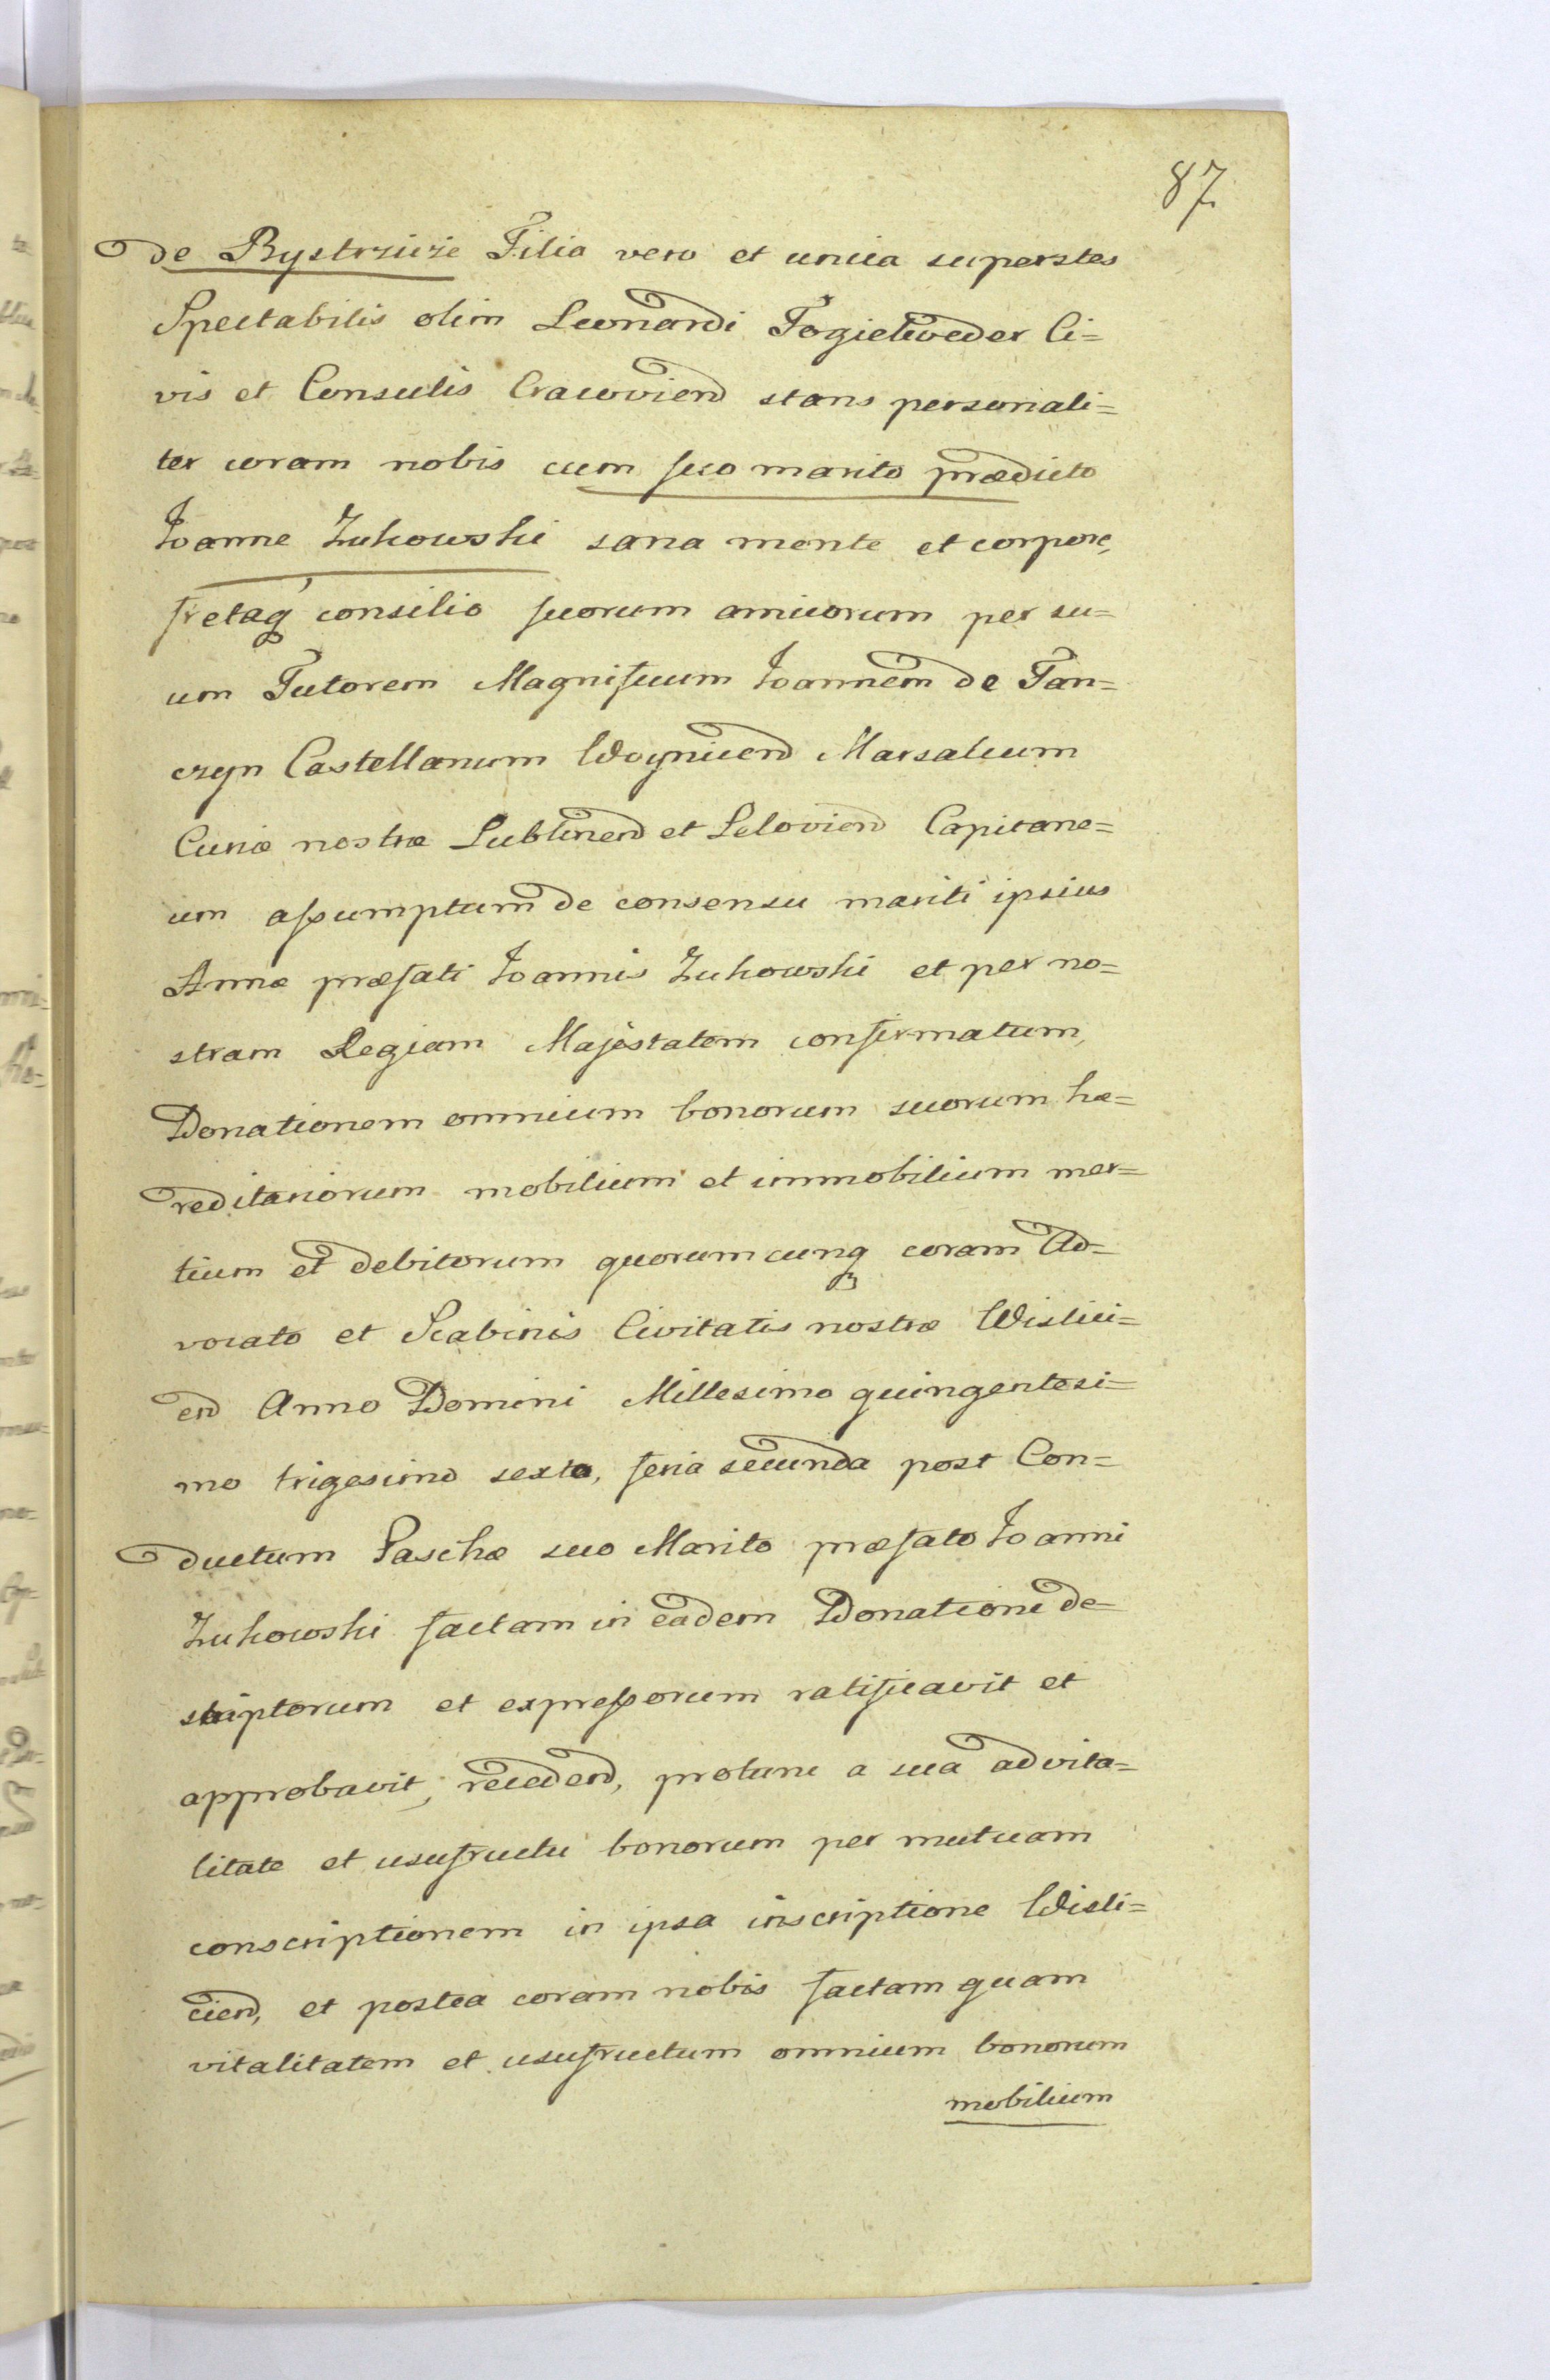 87
de Bystrzicze Filia vero et unica superstes
Spectabilis olim Leonardi Fogielweder Ci=
vis et Consulis Cracoviend stans personali=
ter coram nobis cum suo marito prædicto
Joanne Zukowski sana mente et corpore,
fretaq consilio suorum amicorum per su=
um Tutorem Magnificum Joannem de Tan=
czyn Castellanum Woyniciend Marsalcum
Curiæ nostræ Lublinend et Leloviend Capitane=
um assumptum de consensu mariti ipsius
Annæ præfati Joannis Zukowski et per no=
stram Regiam Majestatem confirmatum,
Donationem omnium bonorum suorum hæ=
reditariorum mobilium et immobilium mer=
tium et debitorum quorumcunq coram Ad=
vocato et Scabinis Civitatis nostræ Wislici=
end Anno Domini Millesimo quingentesi=
mo trigesimo sexto, feria secunda post Con=
ductum Paschæ suo Marito præfato Joanni
Zukowski factam in eadem Donatione de=
scriptorum et expressorum ratificavit et
approbavit, recedend, protunc a sua advita=
litate et usufructu bonorum per mutuam
conscriptionem in ipsa inscriptione Wisli=
ciend, et postea coram nobis factam quam
vitalitatem et usufructum omnium bonorum
mobilium